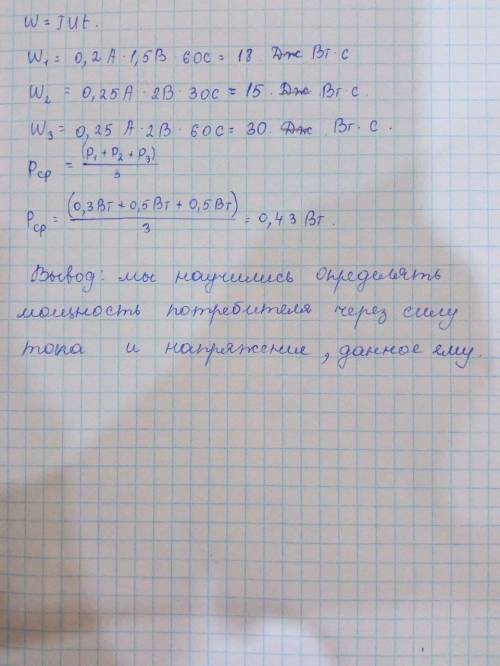 W = IUt.
W₁ = 0,2 А · 1,5 В · 60с = 18 Дж Вт · с
W₂ = 0,25А · 2В · 30с = 15. Дж Вт · с.
W₃ = 0,25 А · 2В · 60с = 30. Дж Вт · с.
Pср = (P₁ + P₂ + P₃) / 3
Pср = (0,3Вт + 0,5Вт + 0,5Вт) / 3 = 0,43 Вт.
Вывод: мы научились определять
мощность потребителя через силу
тока и напряжение, данное ему.